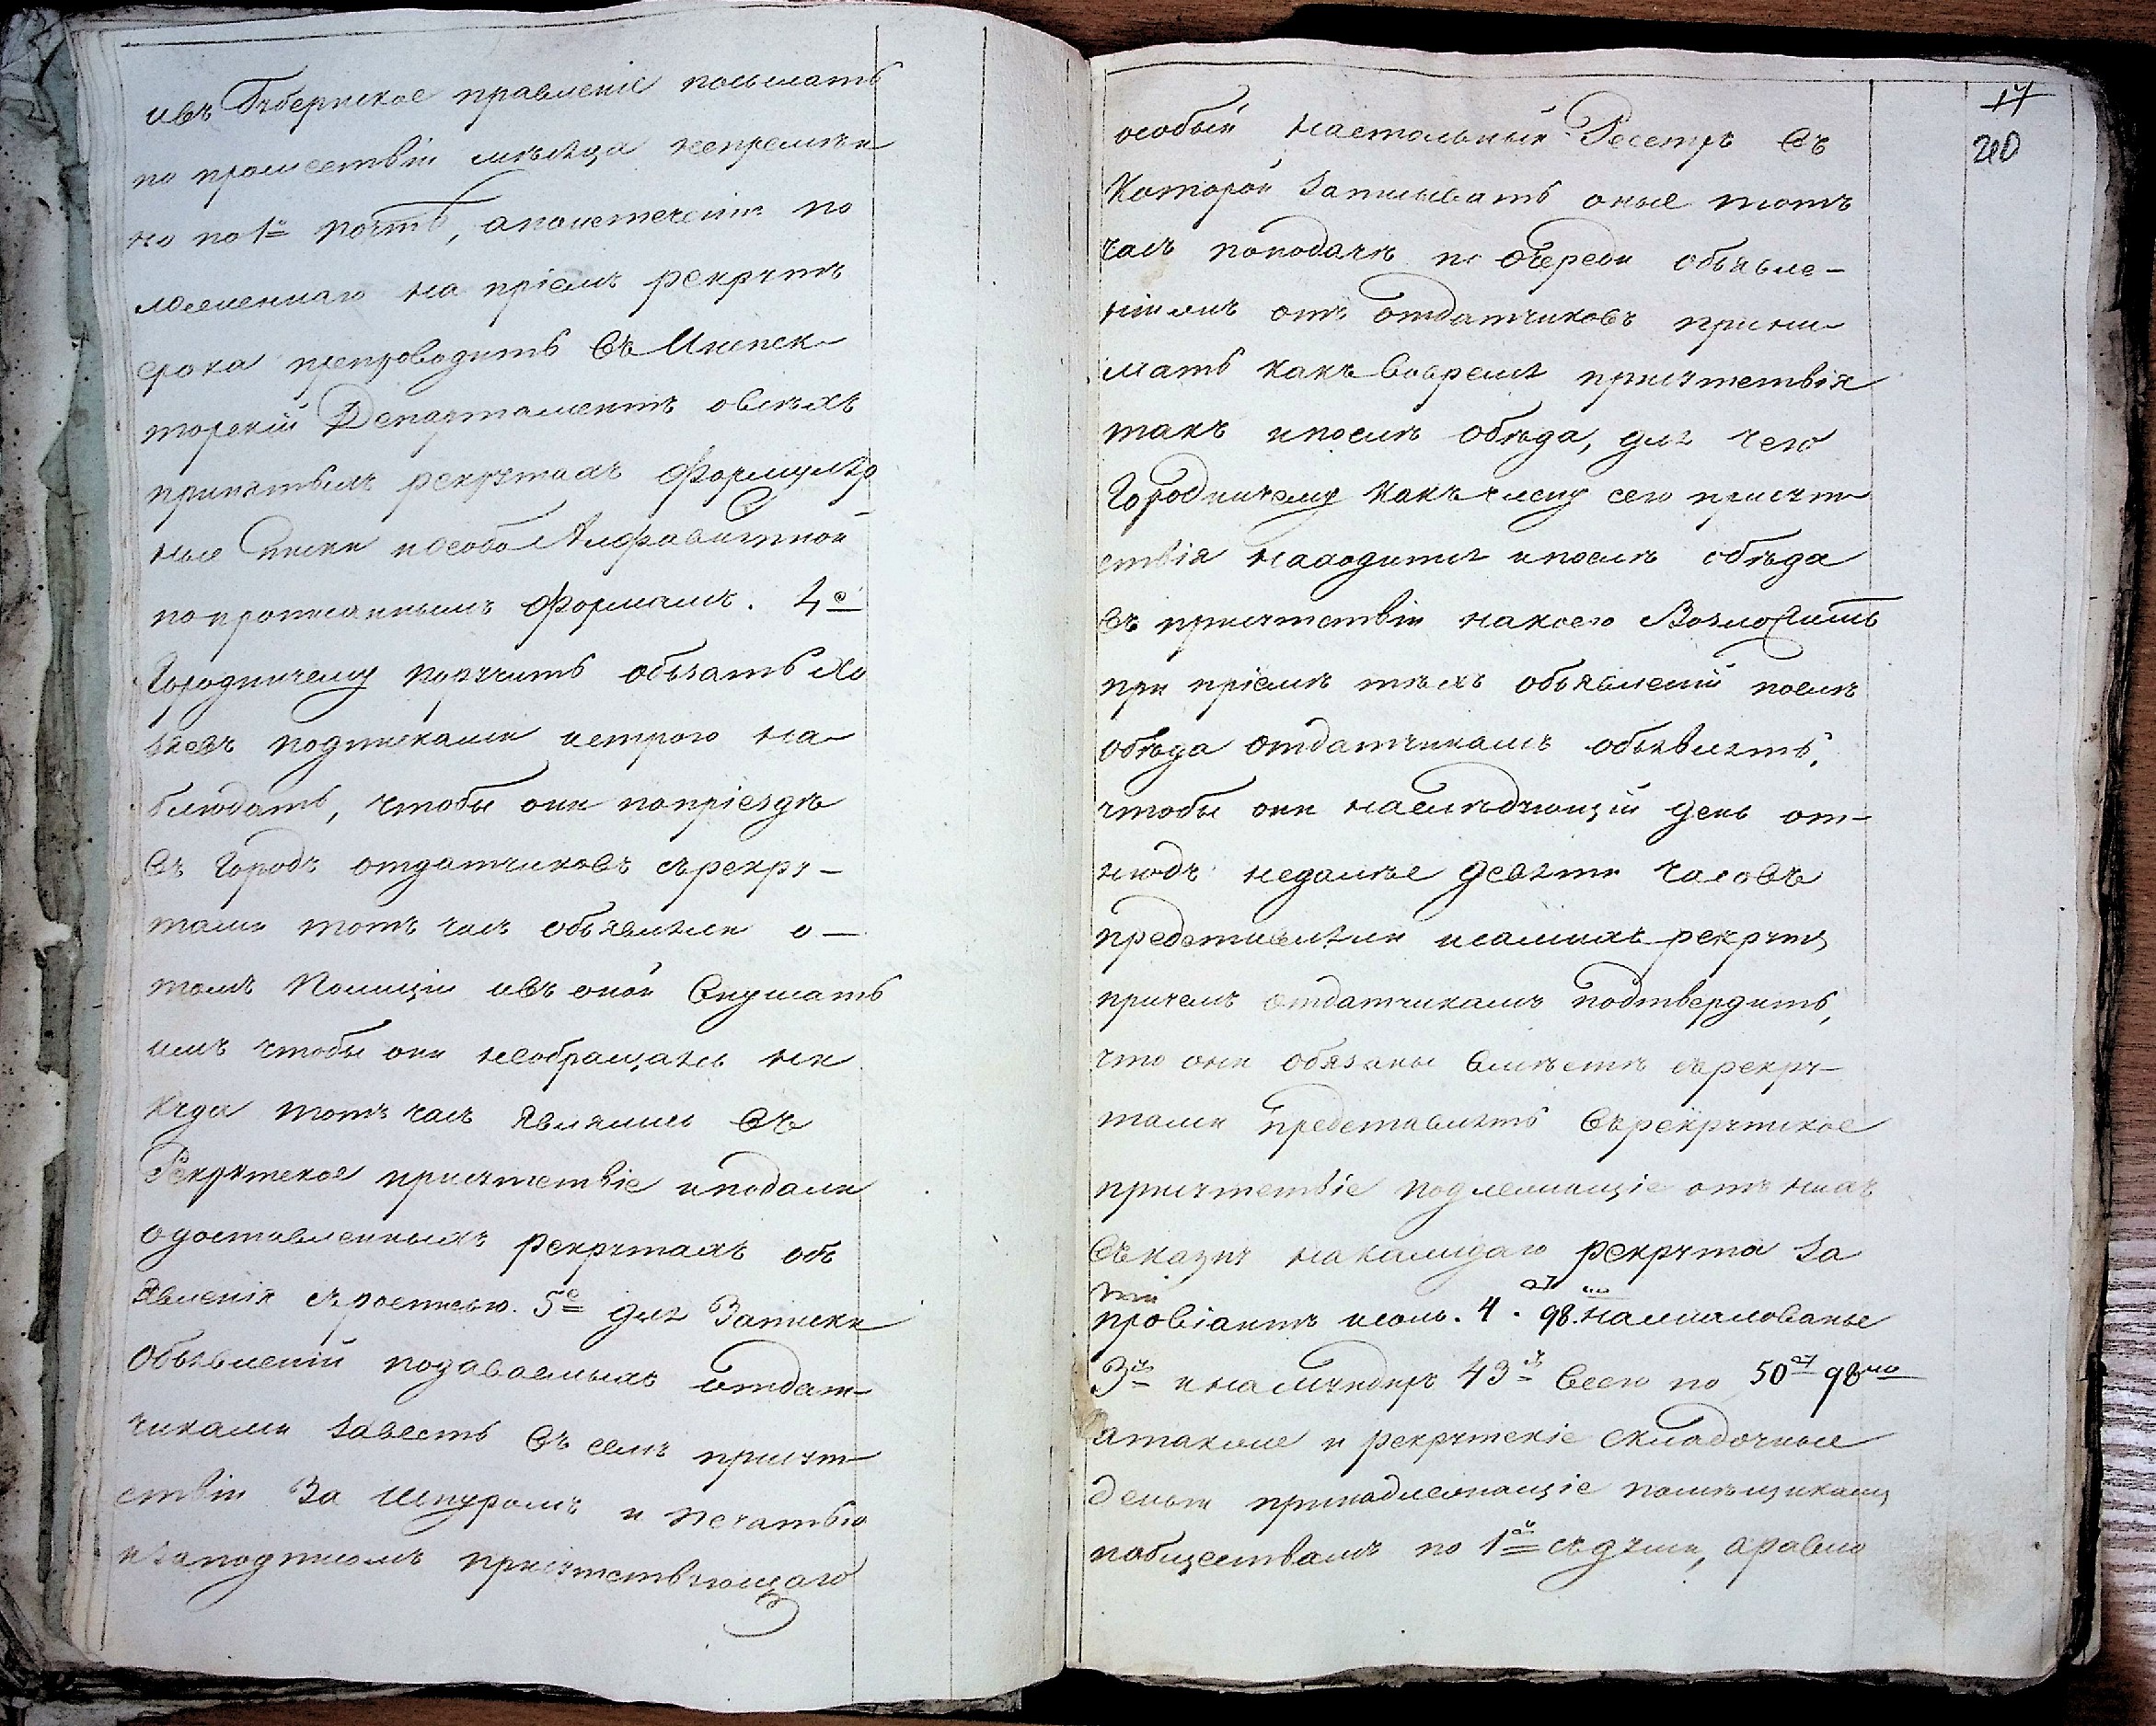 ивъ Губернское правленіе посылать
по прошествіи мѣсяца непремѣн
но по 1й почтѣ, апоистеченіи по
ложеннаго на пріемъ рекрутъ
срока препроводить въ Инспек-
торскій Департаментъ овсѣхъ
принятыхъ рекрутахъ Формуляр
ные списки иособо Алфавитной
попрописаннымъ Формамъ. 4е
Городничему поручить обязать Хо
зяевъ подписками истрого на-
блюдать, чтобы они попріездѣ
въ Городъ отдатчиковъ сърекру-
тами тотъ часъ объявляли о-
томъ Полиціи ивъ оной Внушать
имъ чтобы они необращаясь ни
куда тотъ часъ являлись въ
Рекрутское присутствіе иподали
одоставленныхъ рекрутахъ объ
явленія съроспись. 5е для Записки
Объявленій подаваемыхъ отдат-
чиками завесть въ семъ присут-
ствіи За шнуромъ и печатью
изаподписомъ присутствующаго
17
20
особый настольный Реестръ въ
Которой записывать оные тотъ
часъ поподачѣ по очереди объявле-
ніямъ отъ отдатчиковъ прини-
мать какъ вовремя присутствія
такъ ипослѣ обѣда, для чего
Городничему какъ члену сего присут-
ствія находится ипослѣ обѣда
въ присутствіи накоего Возложить
при пріемѣ тѣхъ объявленій послѣ
обѣда отдатчикамъ объявлять,
чтобы они наслѣдующій день от-
нюдъ недалѣе девяти часовъ
представляли исамихъ рекрутъ
причемъ отдатчикамъ подтвердить,
что они обязаны вмѣстѣ сърекру-
тами представлять въРекрутское
присутствіе подлежащіе отъ нихъ
въказну накаждаго рекрута за
провіантъ исоль. 4 р. 98 нажалованье
3р инамундиръ 43р всего по 50р 98ко
атакже и рекрутскіе складочные
деньги принадлежащіе помѣщикамъ
пообществамъ по 1й съдуши, аравно